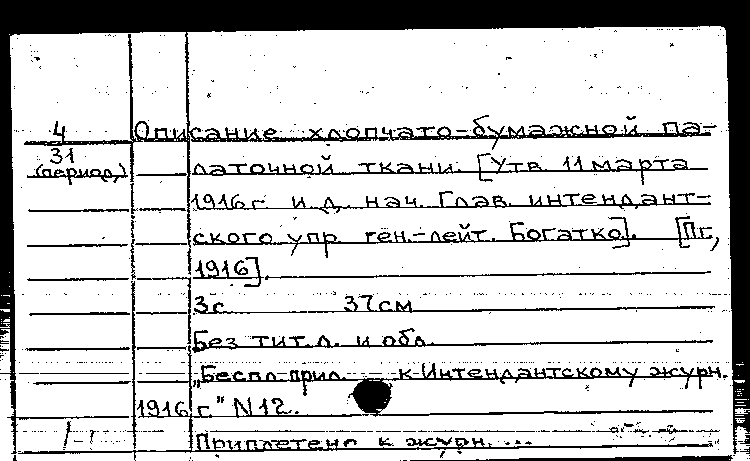 4 Описание хлопчато-бумажной па-
31
(период) латочной ткани. [Утв. 11 марта
1916 г. и.д. нач. Глав. интендант-
ского упр. ген.-лейт. Богатко]. [Пг.,
1916].
3 с. 37 см
Без тит. л. и обл.
„Беспл. прил. - к Интендантскому журн.
1916 г." N 12.
Приплетено к журн. ...